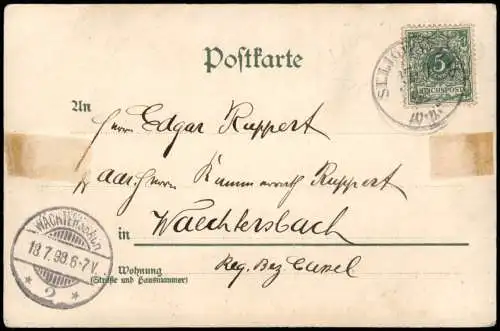 Postkarte
5
REICHSPOST
An
Herrn Edgar Ruppert
adr. Herrn Kammerrath Ruppert
in Waechtersbach
Wohnung
(Straße und Hausnummer)
Reg. Bez Cassel
WÄCHTERSBACH
18.7.98.6-7V.
* 2 *